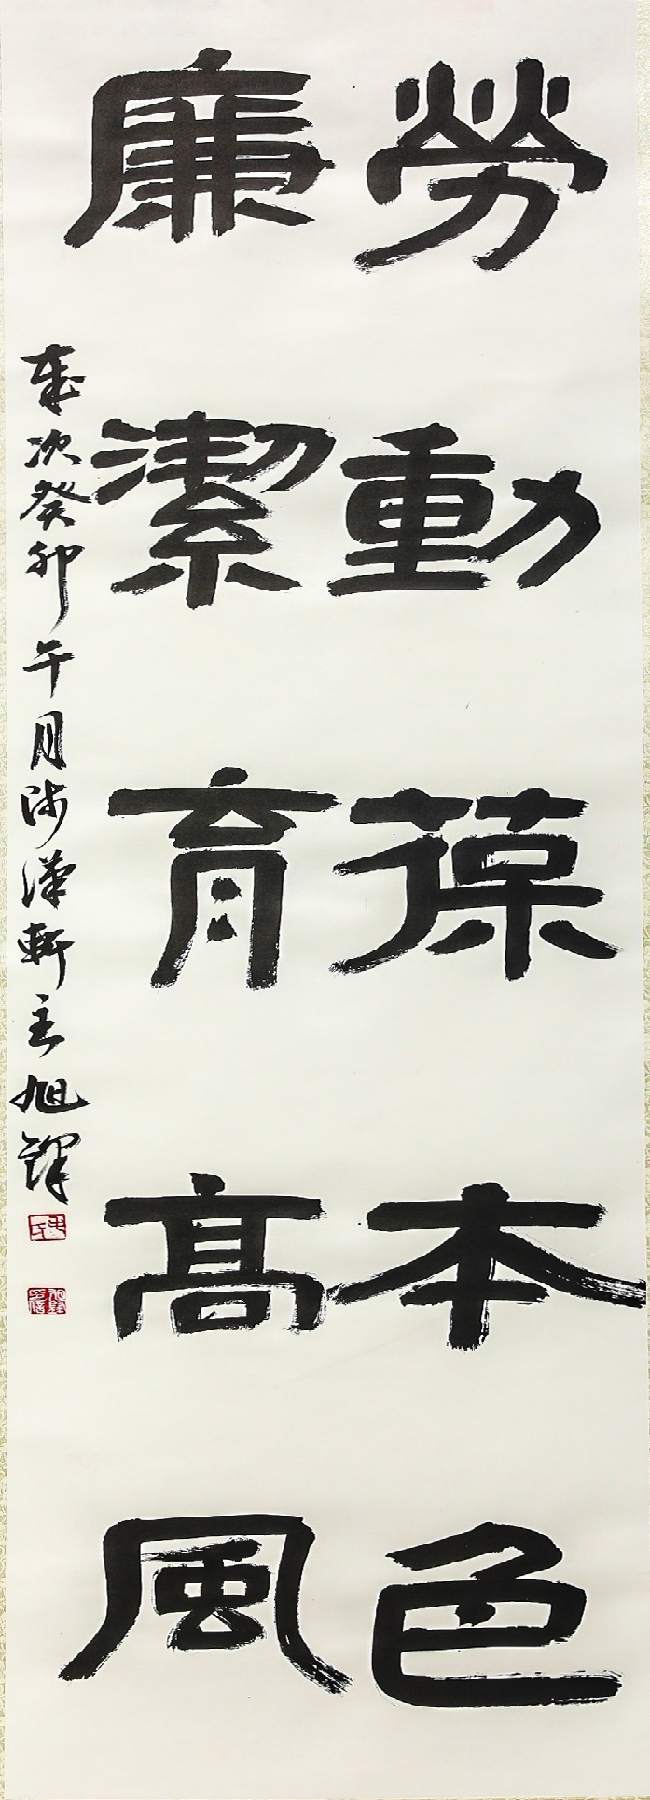 勞動葆本色
廉潔育高風
歲次癸卯午月沙漢軒主旭鐸